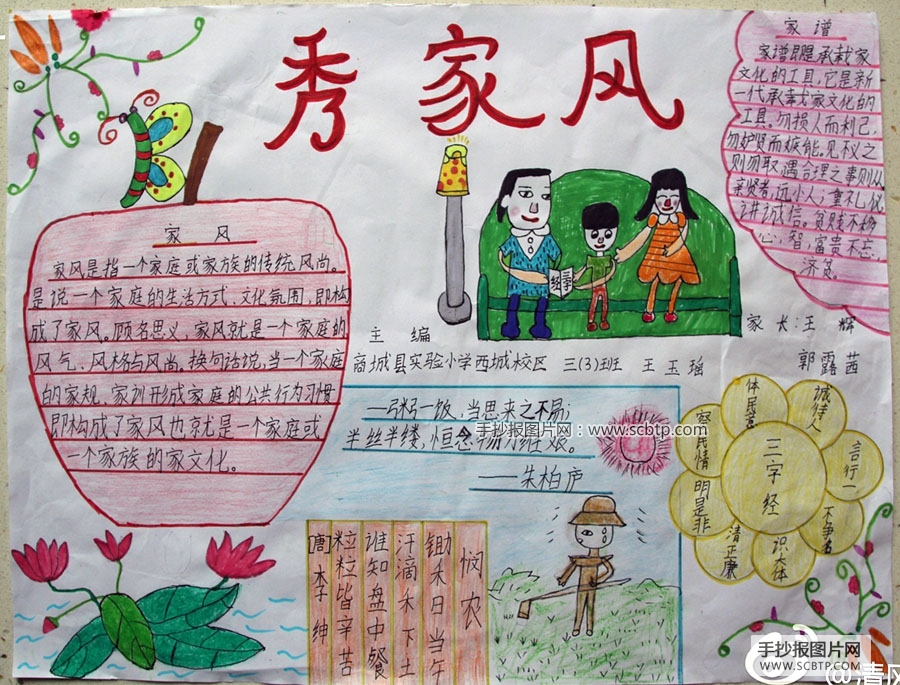 秀家风
家谱
家谱即是承载家
文化的工具,它是新
一代承载家文化的
工具,勿损人而利己,
勿妒贤而嫉能。见不义之
则勿取,遇合理之事则从
亲贤者,远小人;重礼仪
讲诚信。贫贱不移
心,智;富贵不忘
济贫
家风
家风是指一个家庭或家族的传统风尚。
是说一个家庭的生活方式、文化氛围,即构
成了家风。顾名思义,家风就是一个家庭的
风气、风格与风尚。换句话说,当一个家庭
的家规、家训形成家庭的公共行为习惯
即构成了家风也就是一个家庭或
一个家族的家文化。
家长:王辉
郭露茜
主编
商城县实验小学西城校区 三(3)班 王玉瑶
一粥一饭,当思来之不易;
半丝半缕,恒念
——朱柏庐
手抄报图片网:www.scbtp.com
三字经
体民意
诚待人
言行一
不争名
识大体
清正廉
明是非
察民情
悯农
锄禾日当午
汗滴禾下土
谁知盘中餐
粒粒皆辛苦
[唐]李绅
手抄报图片网
WWW.SCBTP.COM